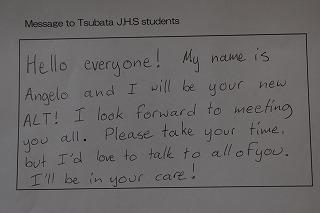 Message to Tsubata J.H.S students
Hello everyone! My name is
Angelo and I will be your new
ALT! I look forward to meeting
you all. Please take your time,
but I'd love to talk to all of you.
I'll be in your care!